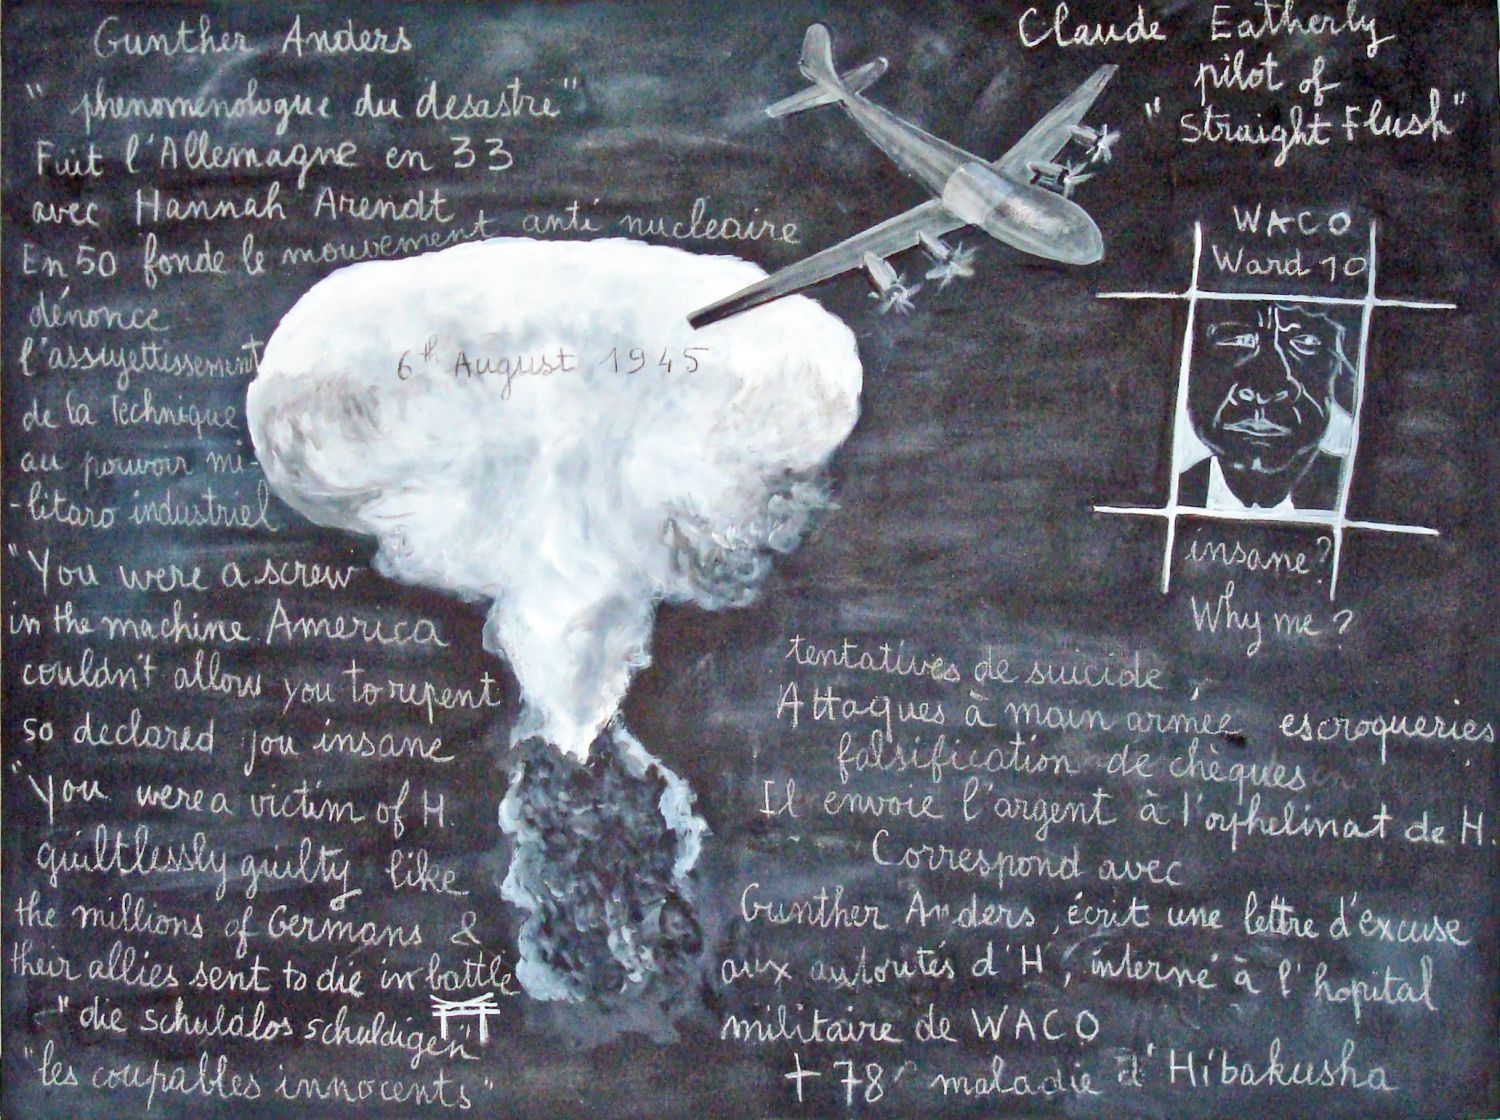 Gunther Anders
"phenomenologue du desastre"
Fuit l'Allemagne en 33
avec Hannah Arendt
En 50 fonde le mouvement anti nucleaire
dénonce
l'assujettissement
de la Technique
au pouvoir mi-
-litaro industriel
"You were a screw
in the machine America
couldn't allow you to repent
so declared you insane
"You were a victim of H.
guiltlessly guilty like
the millions of Germans &
their allies sent to die in battle
"die schuldlos schuldigen"
"les coupables innocents"
6th August 1945
Claude Eatherly
pilot of
"Straight Flush"
WACO
Ward 10
insane?
Why me?
tentatives de suicide,
Attaques à main armée escroqueries
falsification de chèques
Il envoie l'argent à l'orphelinat de H.
Correspond avec
Gunther Anders, écrit une lettre d'excuse
aux autoutés d'H, interné à l'hopital
militaire de WACO
† 78 maladie d'Hibakusha